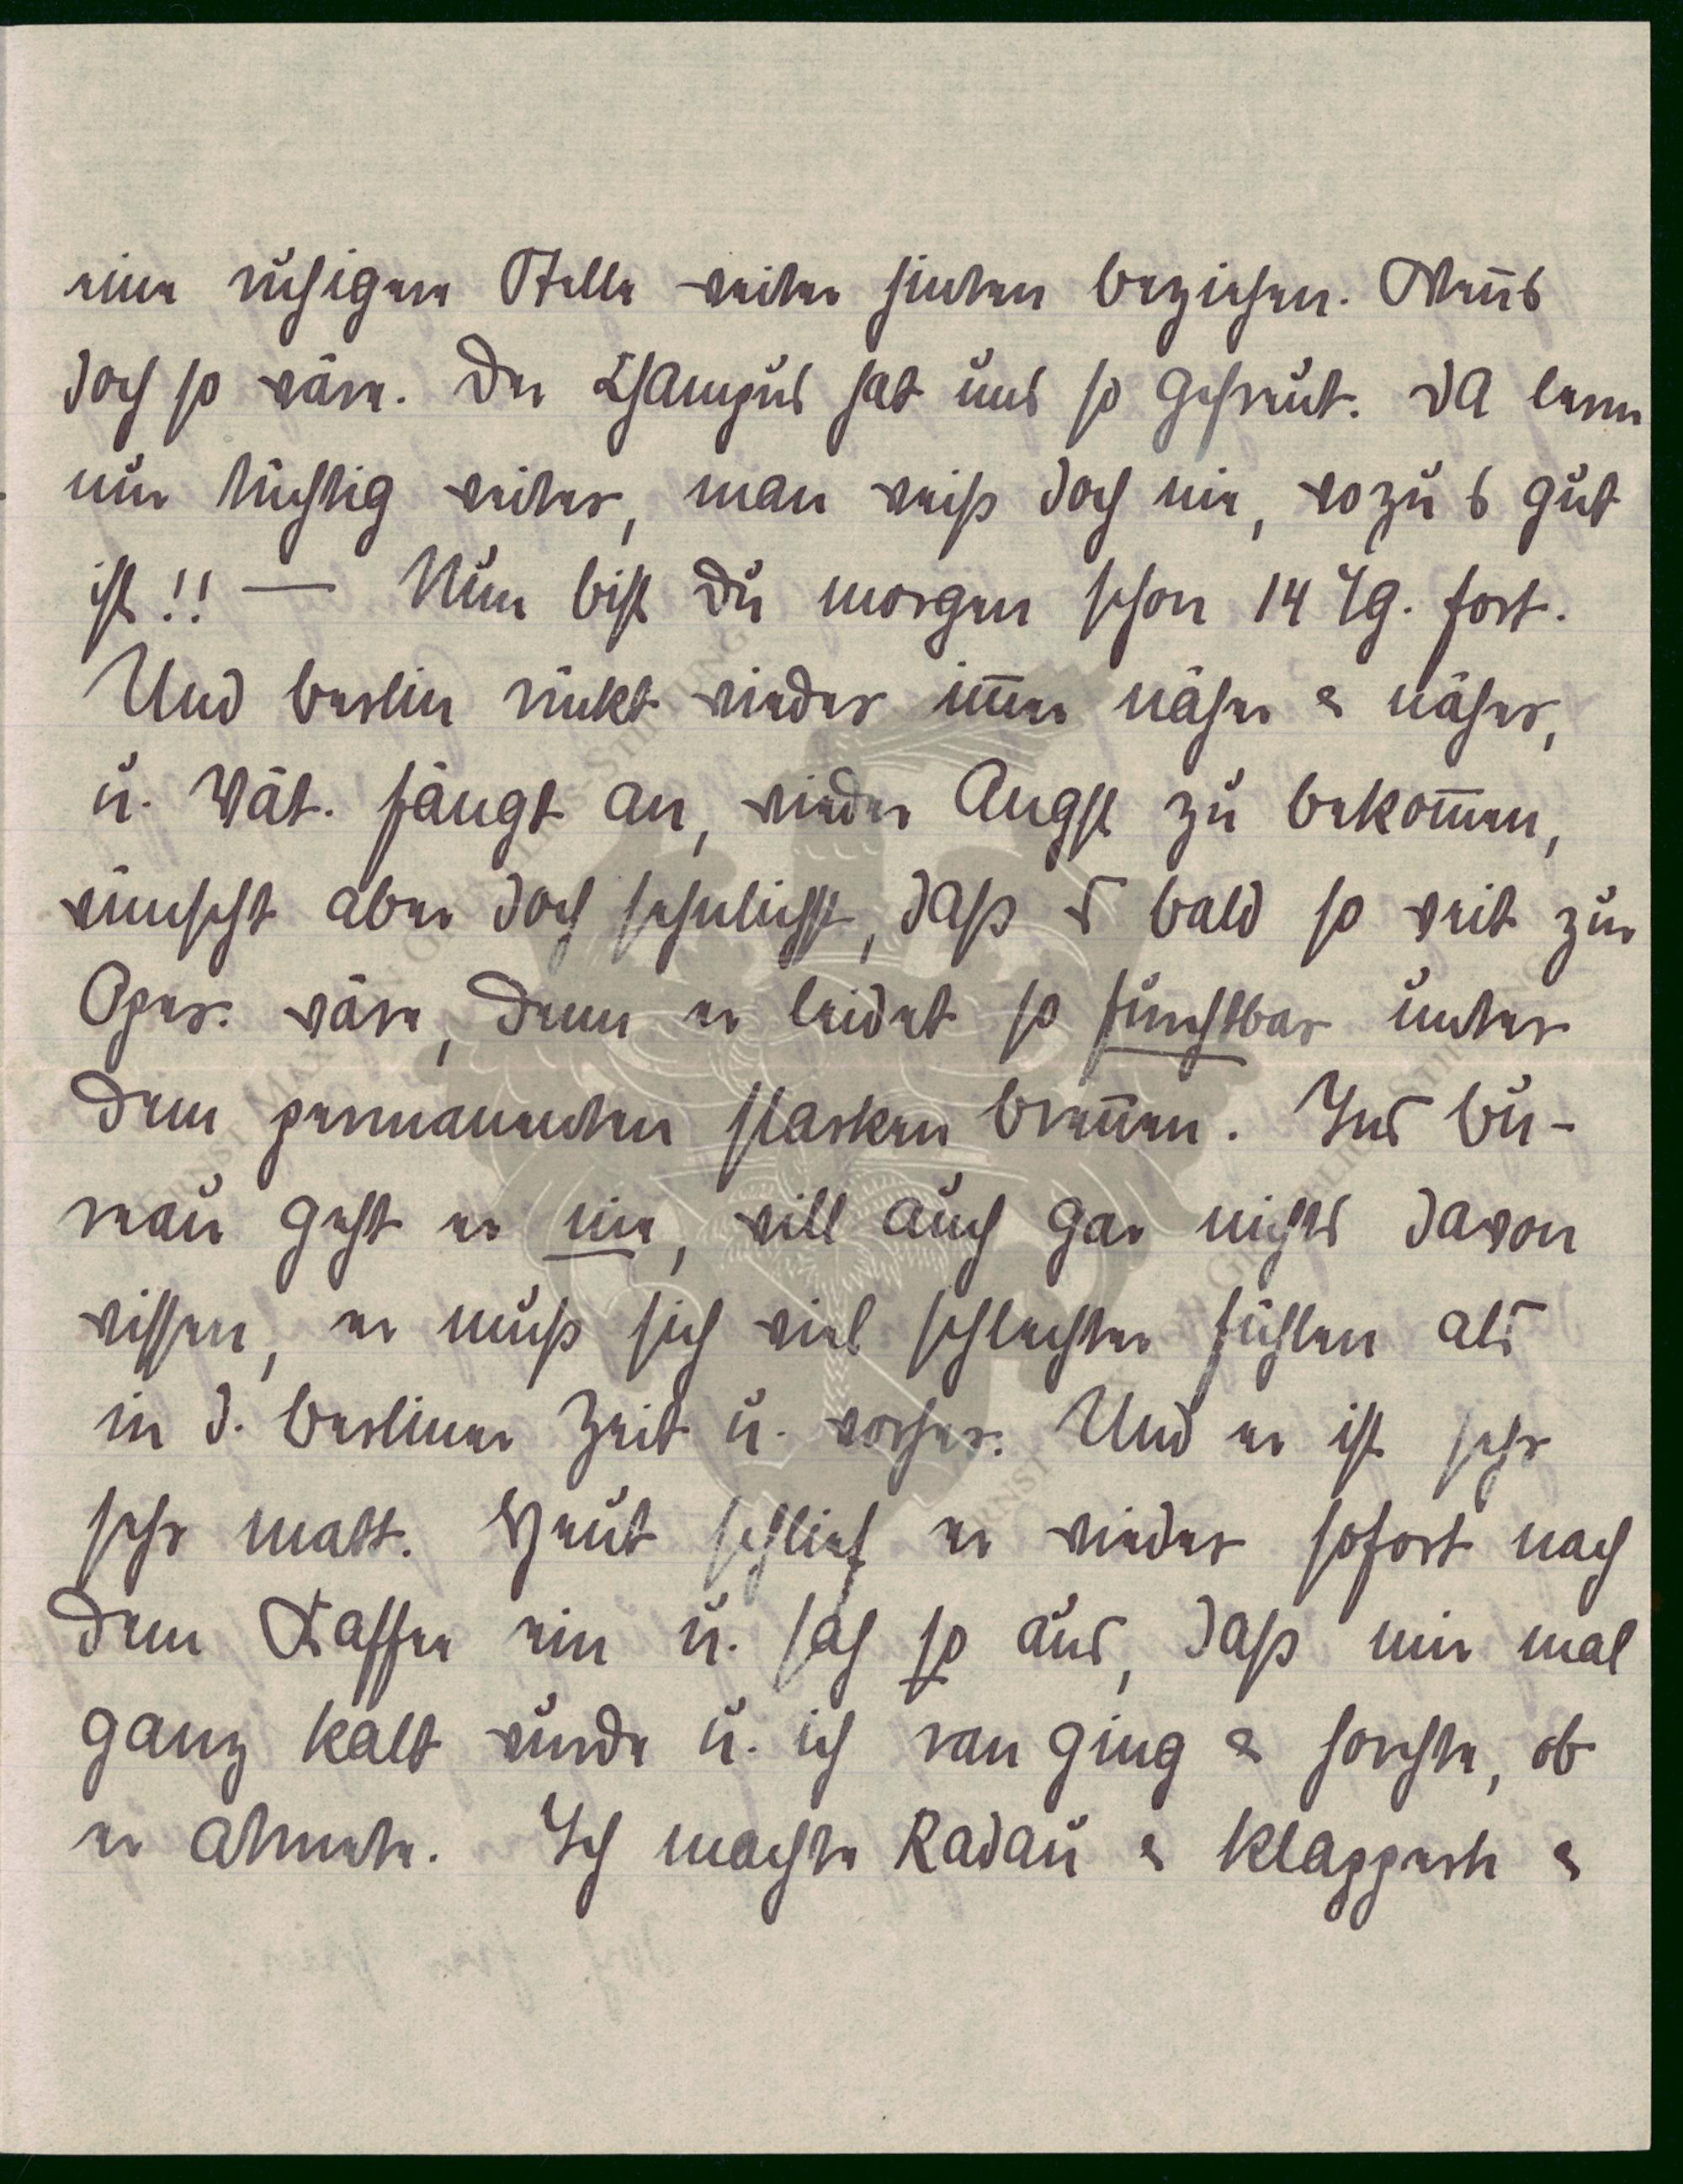 eine ruhigere Stelle weiter hinten beziehen. Wenns
doch so wäre. Der Champus hat uns so gefreut. Da lern
nur tüchtig weiter, man weiß doch nie, wozu s gut
ist!! — Nun bist Du morgen schon 14 Tg. fort.
Und Berlin rückt wieder immer näher & näher,
u. Vät. fängt an, wieder Angst zu bekommen,
wünscht aber doch sehnlichst, daß es bald so weit zur
Oper. wäre, denn er leidet so furchtbar unter
dem permanenten starken Brennen. Ins Bü-
reau geht er nie, will auch gar nichts davon
wissen, er muß sich viel schlechter fühlen als
in d. Berliner Zeit u. vorher. Und er ist sehr
sehr matt. Heut schlief er wieder sofort nach
dem Kaffee ein u. sah so aus, daß mir mal
ganz kalt wurde u. ich ran ging & horchte, ob
er atmete. Ich machte Radau & klapperte &